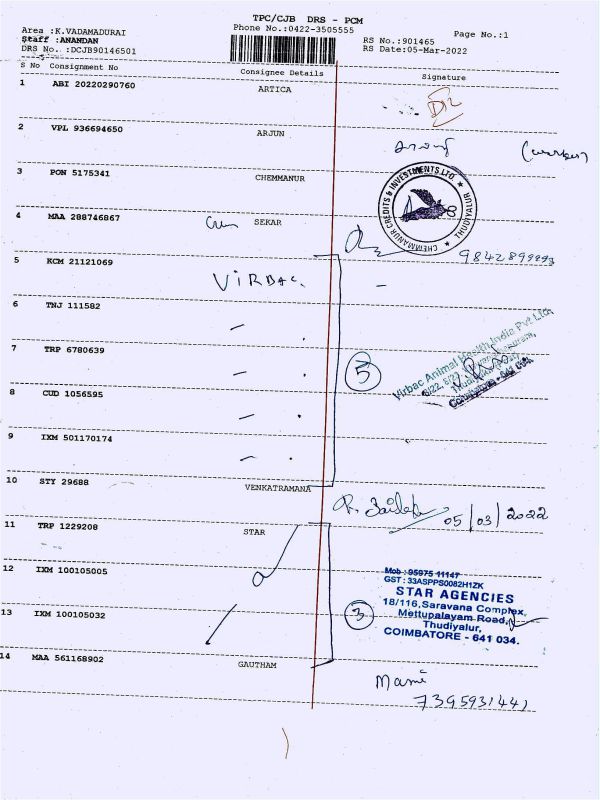 TPC/CJB DRS - PCM
Area :K.VADAMADURAI
Phone No.:0422-3505555
Page No.:1
Staff :ANANDAN
RS No.:901465
DRS No. :DCJB90146501
RS Date:05-Mar-2022
S No Consignment No Consignee Details Signature
1 ABI 20220290760 ARTICA
2 VPL 936694650 ARJUN
3 PON 5175341 CHEMMANUR
CHEMMANUR CREDITS & INVESTMENTS LTD. ★ THUDIYALUR ★
4 MAA 288746867 SEKAR
5 KCM 21121069 VIRBAC.
6 TNJ 111582
Virbac Animal Health India Pvt Ltd
7 TRP 6780639 5
8 CUD 1056595
9 IXM 501170174
10 STY 29688 VENKATRAMANA
05/03/2022
11 TRP 1229208 STAR
12 IXM 100105005
Mob : 95975 11147
GST : 33ASPPS0082H1ZK
STAR AGENCIES
18/116,Saravana Complex,
13 IXM 100105032 3
Mettupalayam Road,
Thudiyalur,
COIMBATORE - 641 034.
14 MAA 561168902 GAUTHAM
Mani
7395931441